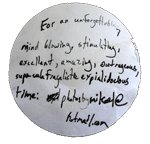 For an unforgettable,
mind blowing, stimulating,
excellent, amazing, outrageous,
supercalifragilistic expialidocious
time: photosbymike1@
hotmail.com